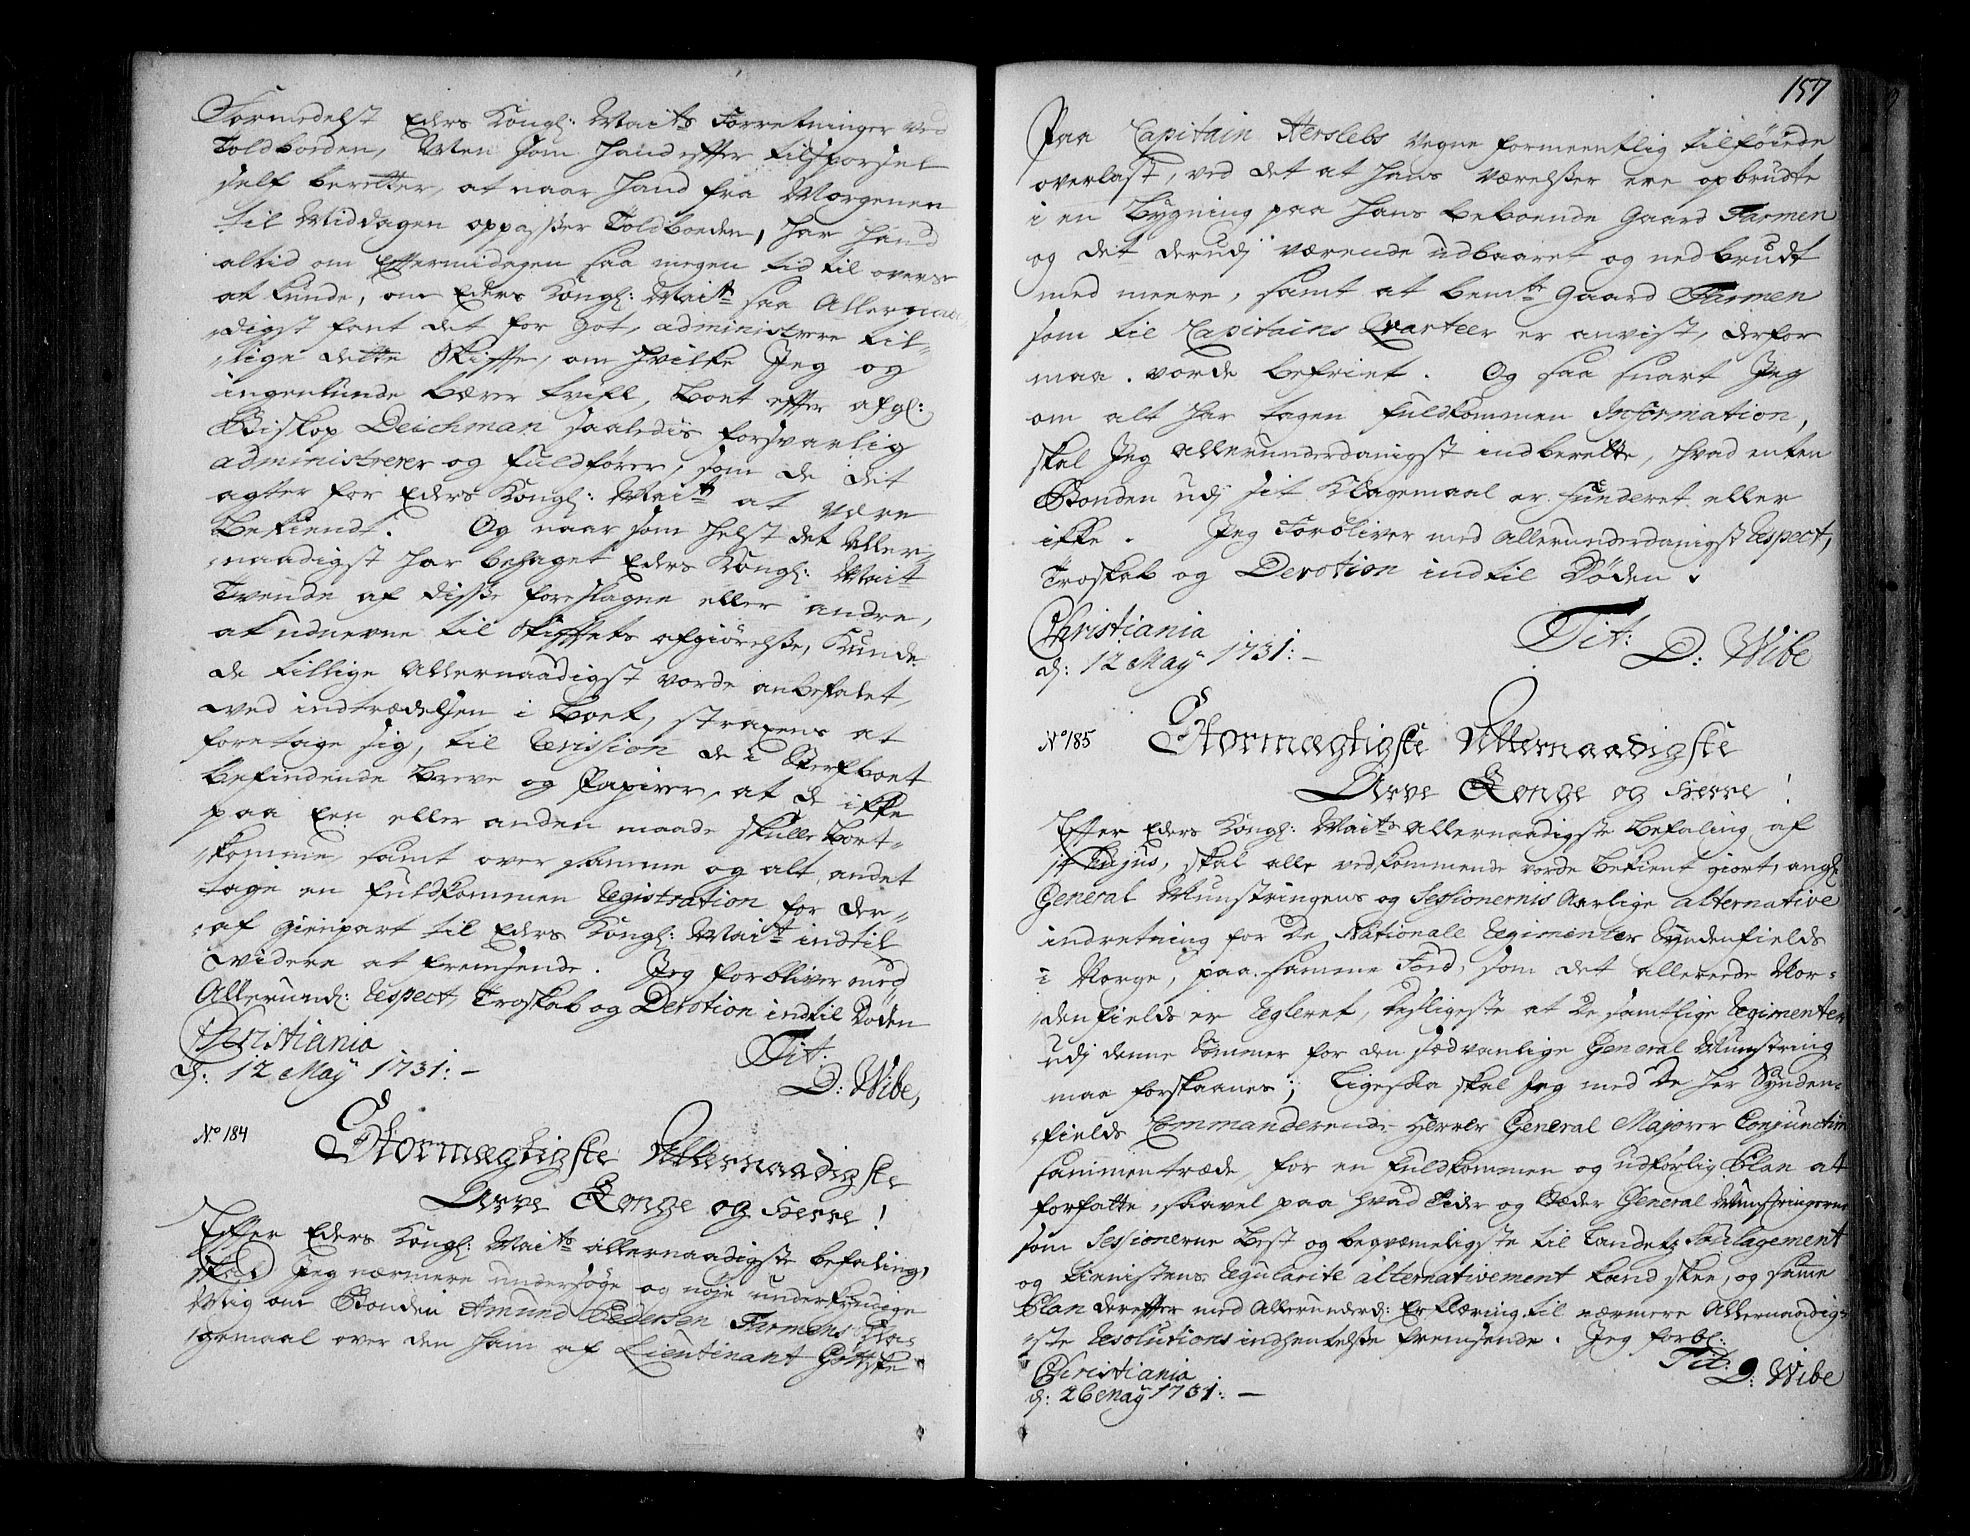 Formedelst Eders Kongl: Maits Forretninger ved
Toldboden, Men som hand efter tilspørsel
self beretter, at naar hand fra Morgenen
til Middagen oppasser Toldboeden, har hand
altid om Eftermidagen saa megen tid til overs
at kunde, om Eders Kongl: Mait saa Allernaa-
digst fant det for got, administrere til-
lige dette Skiffte, om hvilke Jeg og
ingenlunde bærer tvifl, boet efter afgl:
Biskop Deichman saaledis forsvarlig
administrerer og fuldfører, som de det
agter for Eders Kongl: Mait at være
bekiendt. Og naar som helst det Aller-
naadigst har behaget Eders Kongl: Mait
Tvende af disse foreslagne eller andre,
at udnevne til Skifftets afgiørelse, kunde
de tillige Allernaadigst vorde anbefalet,
ved indtrædelsen i boet, straxens at
foretage sig, til Revision de i Sterfboet
befindende breve og Papirer, at de ikke
paa Een eller anden maade skulle bort-
komme, samt over samme og alt andet
tage en fuldkommen Registration for der-
af gienpart til Eders Kongl: Mait indtil
Widere at fremsende. Jeg forbliver med
Allerund: Respect, Troskab og Devotion indtil Døden
Christiania
d: 12 May 1731:— Tit:
D: Wibe,
No 184 Stormægtigste Allernaadigste
Arve Konge og Herre!
Effter Eders Kongl: Maits allernaadigste befaling,
skal Jeg nærmere undersøge og nøje underkyndige
Mig om Bonden Amund Pedersen Farmens Kla-
gemaal over den ham af Lieutinant Gottske
157
Paa Capitain Herslebs vegne formeentlig tilføiede
overlast, ved det at hans værelser ere opbrudte
i en Bygning paa hans beboende Gaard Farmen
og det derudj værende udbaaret og nedbrudt
med meere, samt at bemte Gaard Farmen
som til Capitains Qvarteer er anvist, derfor
maa vorde befriet. Og saa snart Jeg
om alt har tagen fuldkommen Information,
skal Jeg allerunderdanigst indberette, hvad enten
Bonden udj sit Klagemaal er funderet eller
ikke. Jeg Forbliver med Allerunderdanigst Respect,
Troskab og Devotion indtil Døden.
Christiania
d: 12 May 1731:— Tit:
D: Wibe
No 185 Stormægtigste Allernaadigste
Arve Konge og Herre!
Efter Eders Kongl: Maits allernaadigste befaling af
hujus, skal alle vedkommende vorde bekient giort, angl:
General Munstringens og Sessionernis Aarlige alternative
indretning for De Nationale Regimenter Syndenfields
i Norge, paa samme Fod, som det allerede Nor-
denfields er Regleret, desligeste at De samtlige Regimenter
udj denne Sommer for den sædvanlige General Munstring
maa forskaanes; Ligesaa skal Jeg med De her Synden-
fields Commanderende Herrer General Majorer Conjunctim
sammentræde, for en fuldkommen og udførlig Plan at
forfatte, saavel paa hvad Tider og Stæder General Munstringerne
som Sessionerne best og beqvæmeligste til Landets Soulagement
og Tienistens Regularité alternativement kand skee, og samme
Plan derefter med Allerunderd: Erklæring til nærmere Allernaadig-
ste Resolutions indhentelse fremsende. Jeg forbl:
Christiania Tit:
d: 26 May 1731:— D: Wibe